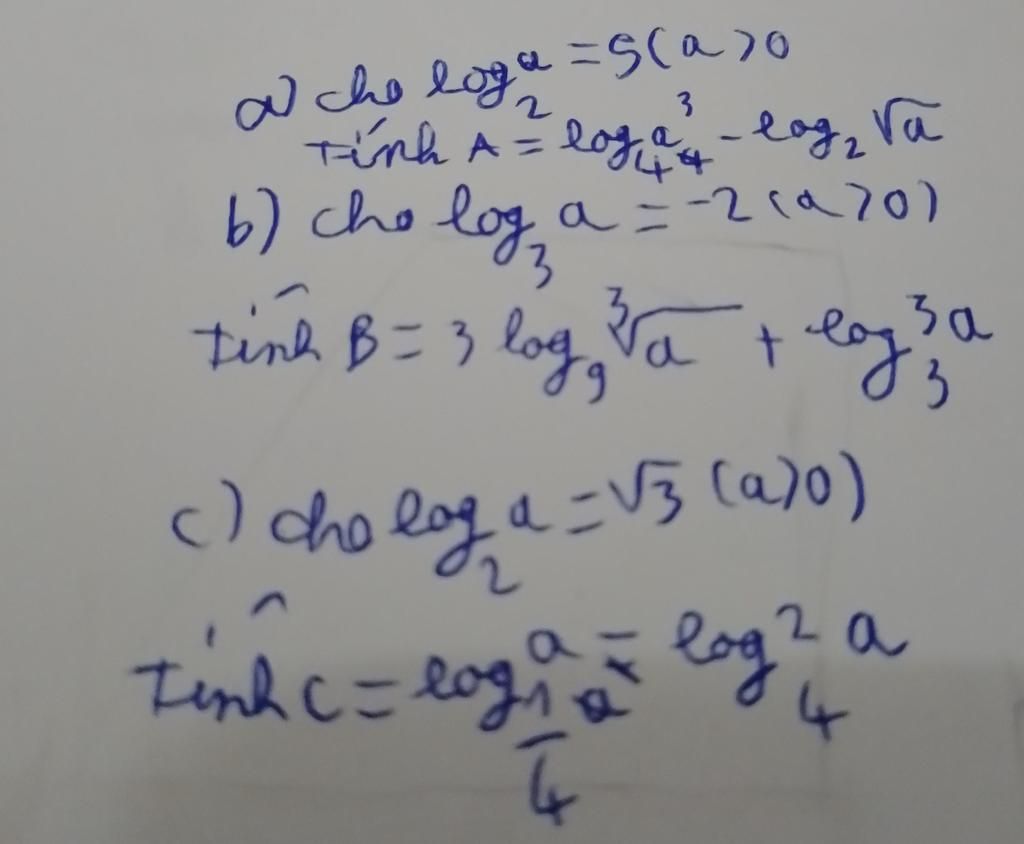 a) cho log₂ a = 5 (a > 0
Tính A = log₄ a³ - log₂ √a
b) cho log₃ a = -2 (a > 0)
Tính B = 3 log₉ ∛a + log³₃ a
c) cho log₂ a = √3 (a > 0)
Tính C = log_{1/4} a - log²₄ a